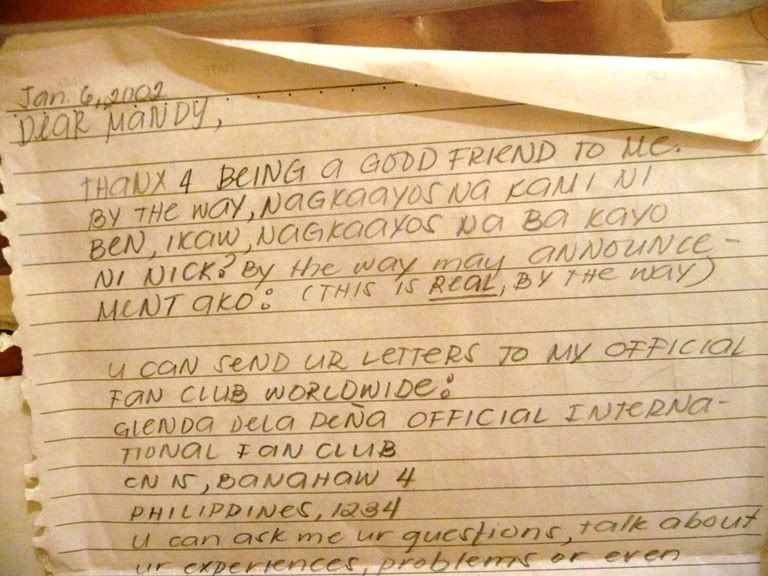 Jan. 6, 2002
DEAR MANDY,
THANX 4 BEING A GOOD FRIEND TO ME.
BY THE WAY, NAGKAAYOS NA KAMI NI
BEN, IKAW, NAGKAAYOS NA BA KAYO
NI NICK? By the way may ANNOUNCE-
MENT AKO: (THIS IS REAL, BY THE WAY)
U CAN SEND UR LETTERS TO MY OFFICIAL
FAN CLUB WORLDWIDE:
GLENDA DELA PEÑA OFFICIAL INTERNA-
TIONAL FAN CLUB
CN 15, BANAHAW 4
PHILIPPINES, 1234
U can ask me ur questions, talk about
ur experiences, problems or even